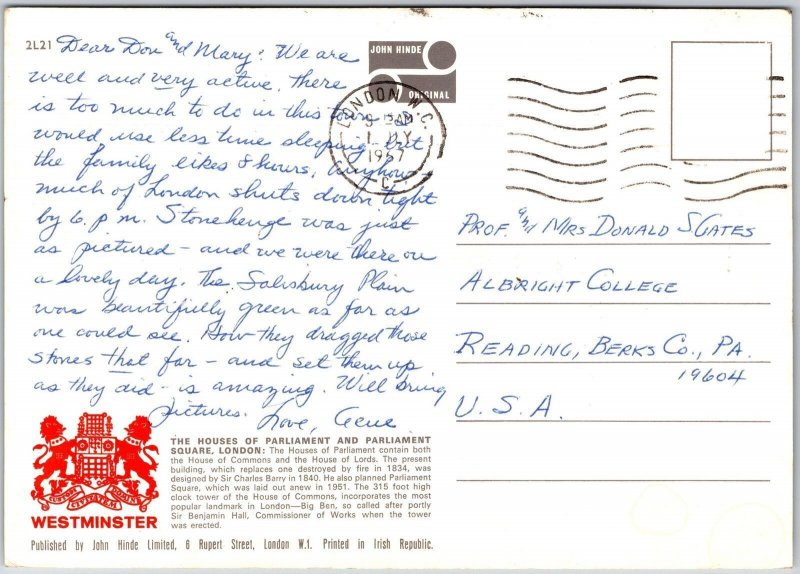 2L21
Dear Don and Mary: We are
well and very active. There
is too much to do in this town - I
would use less time sleeping but
the family likes 8 hours. Anyhow
much of London shuts down tight
by 6. p.m. Stonehenge was just
as pictured - and we were there on
a lovely day. The Salisbury Plain
was beautifully green as far as
one could see. How they dragged those
stones that far - and set them up
as they did - is amazing. Will bring
pictures. Love, Gene
JOHN HINDE
ORIGINAL
LONDON W.C.
1 JLY
1967
C
PROF. and MRS DONALD S GATES
ALBRIGHT COLLEGE
READING, BERKS CO., PA.
19604
U.S.A.
WESTMINSTER
THE HOUSES OF PARLIAMENT AND PARLIAMENT
SQUARE, LONDON: The Houses of Parliament contain both
the House of Commons and the House of Lords. The present
building, which replaces one destroyed by fire in 1834, was
designed by Sir Charles Barry in 1840. He also planned Parliament
Square, which was laid out anew in 1951. The 315 foot high
clock tower of the House of Commons, incorporates the most
popular landmark in London—Big Ben, so called after portly
Sir Benjamin Hall, Commissioner of Works when the tower
was erected.
Published by John Hinde Limited, 6 Rupert Street, London W.1. Printed in Irish Republic.